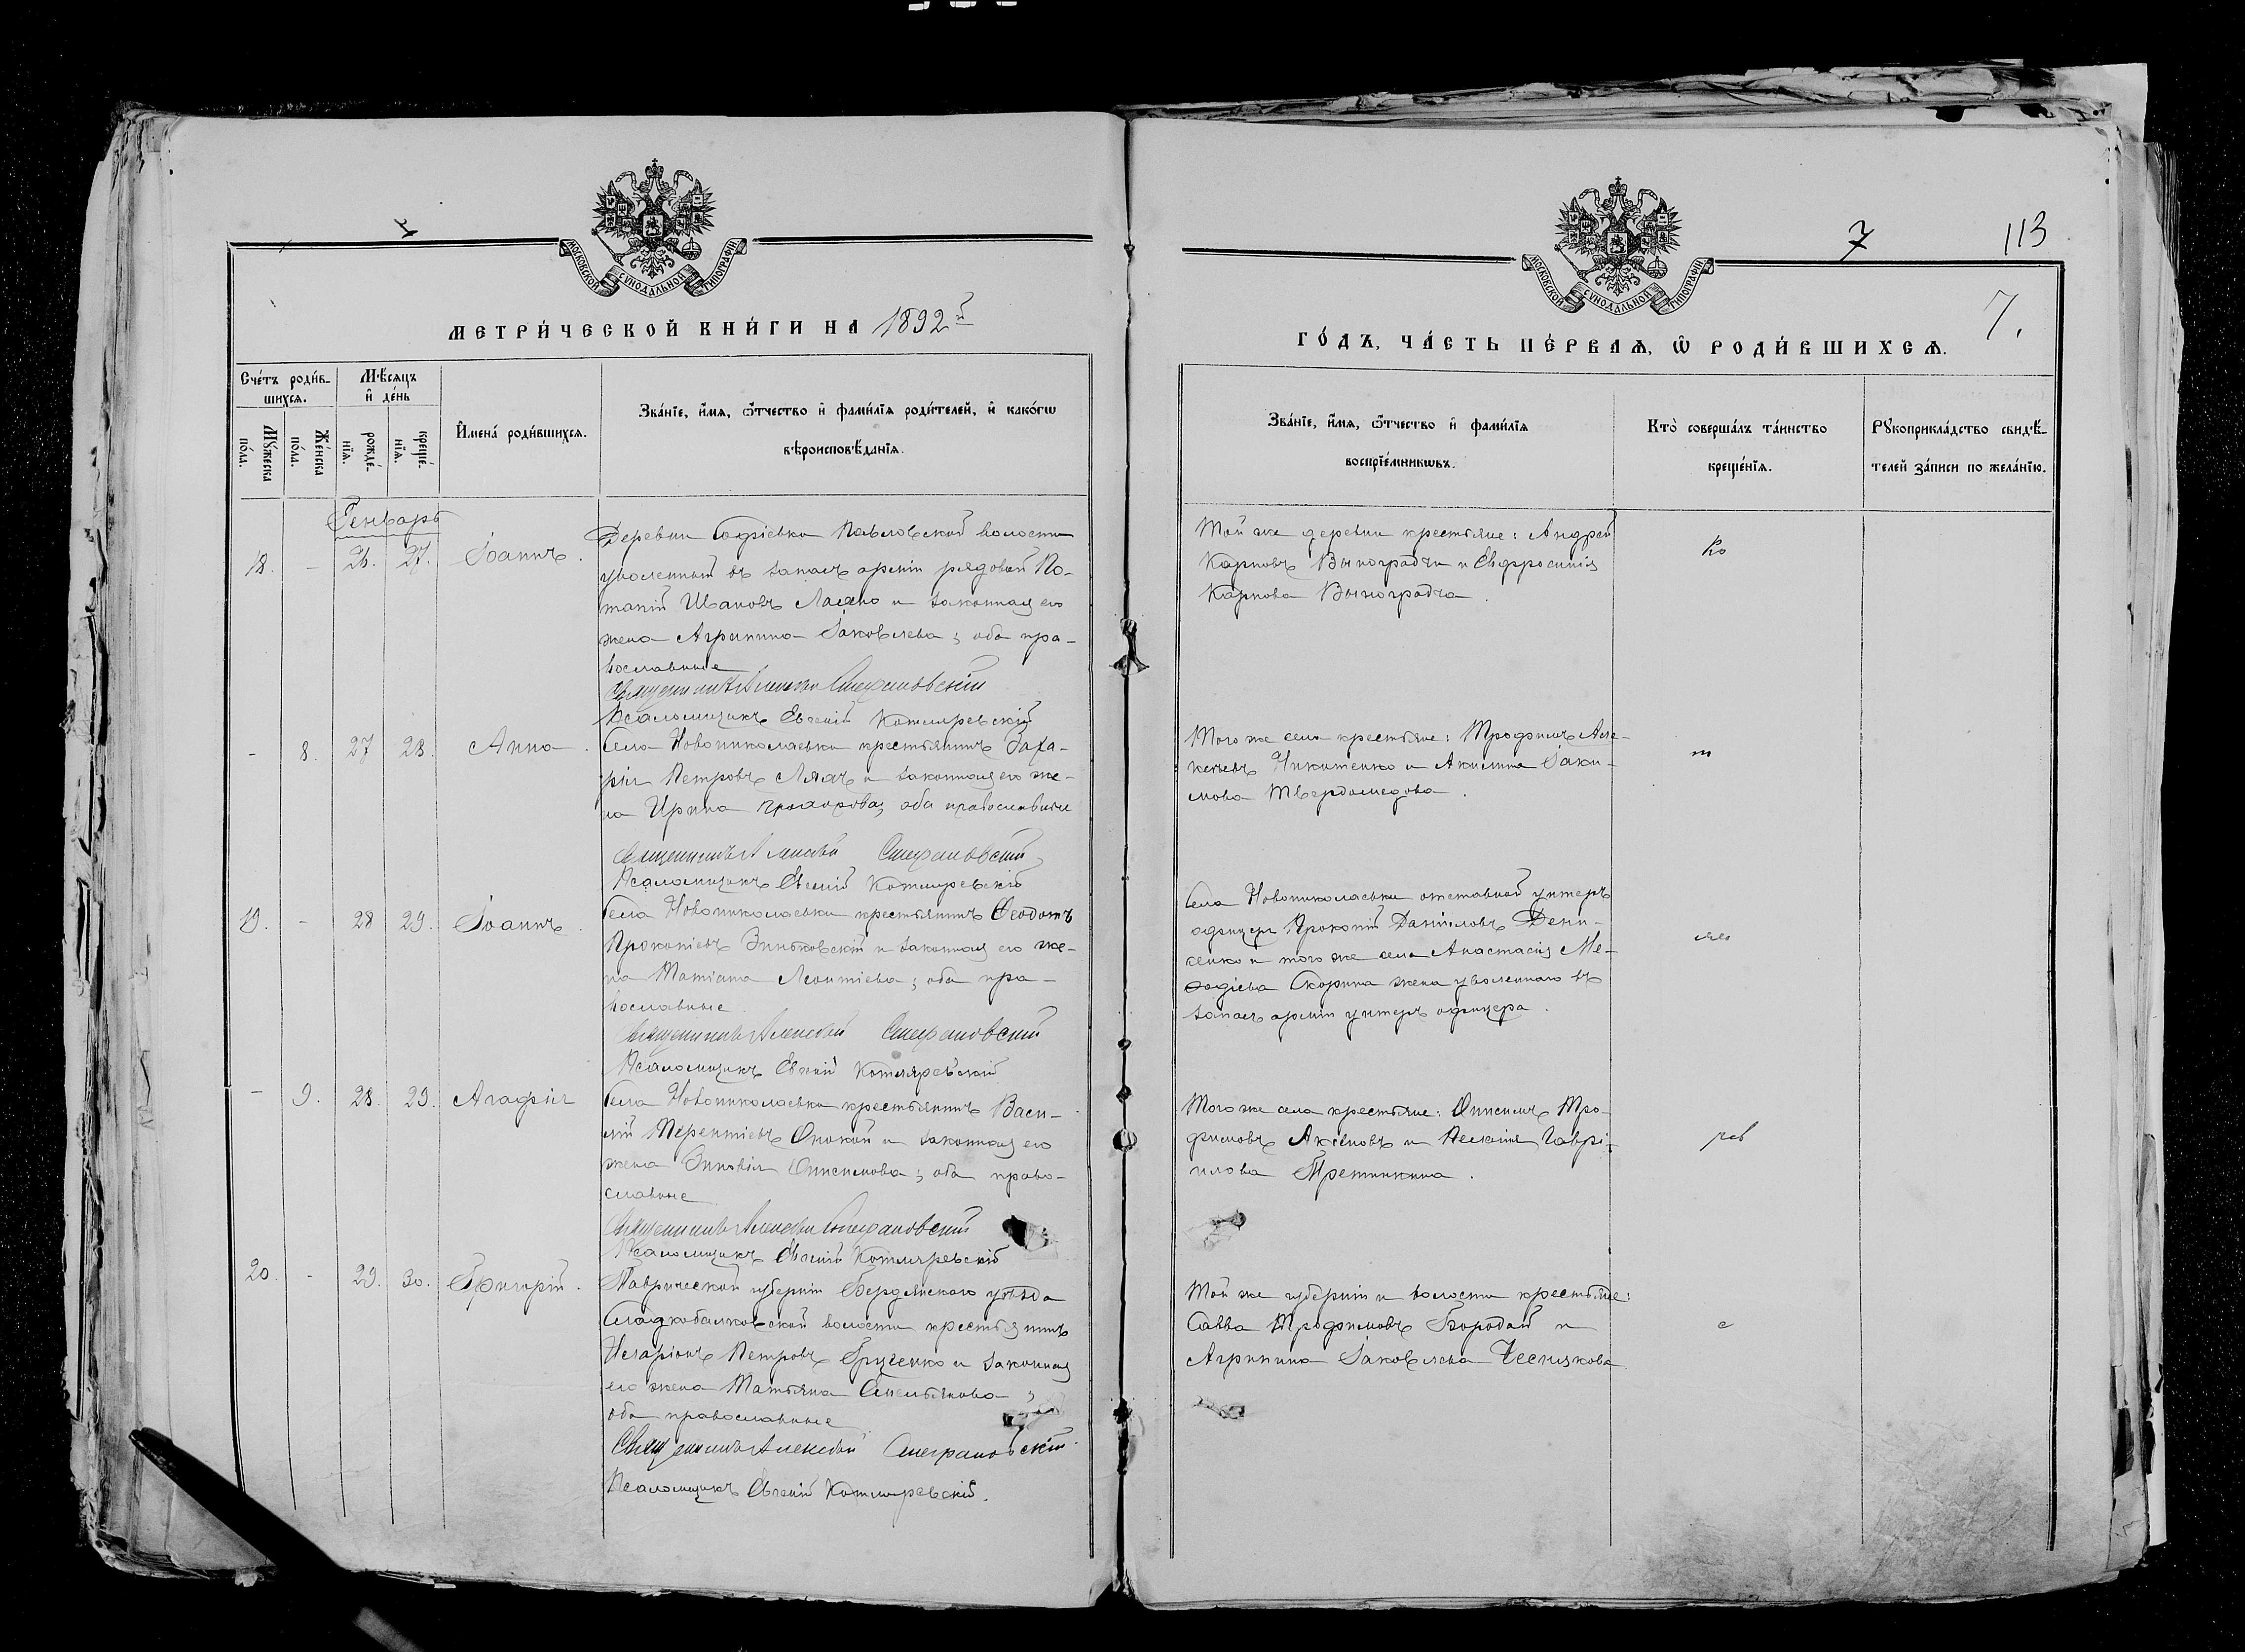 7
113
7.
МОСКОВСКОЙ СѴНОДАЛЬНОЙ ТИПОГРАФІИ
МЕТРИ́ЧЕСКОЙ КНИ́ГИ НА 1892й
МОСКОВСКОЙ СѴНОДАЛЬНОЙ ТИПОГРАФІИ
ГО́ДЪ, ЧА́СТЬ ПЕ́РВАѦ, Ѡ҆ РОДИ́ВШИХСѦ.
Сче́тъ роди́в-
шихсѧ.
Мꙋ́жеска
по́ла.
Же́нска
по́ла.
Мѣ́сѧцъ
и҆ де́нь
рожде́-
нїѧ.
креще́-
нїѧ.
И҆мена̀ роди́вшихсѧ.
Зва́нїе, и҆́мѧ, ѻ҆́тчество и҆ фами́лїѧ роди́телей, и҆ како́гѡ
вѣроисповѣ́данїѧ.
Зва́нїе, и҆́мѧ, ѻ҆́тчество и҆ фами́лїѧ
воспрїе́мникѡвъ.
Кто̀ соверша́лъ та́инство
креще́нїѧ.
Рꙋкоприкла́дство свидѣ́-
телей за́писи по жела́нїю.
Генварь
18. - 26. 27. Іоаннъ.
Деревни Софіевки Павловской волости
уволенный въ запасъ арміи рядовой По-
тапій Ивановъ и законная его
жена Агрипина Іаковлева; оба пра-
вославные
Священникъ Алексѣй Стефановскій
Псаломщикъ Евгеній Котляревскій
Той же деревни крестьяне: Андрей
Карповъ Виноградчи и Евфросинія
Карпова
Ко
- 8. 27 28. Анна.
Села Новониколаевки крестьянинъ Заха-
рій Петровъ Ляхъ и законная его же-
на Ирина оба православные
Священникъ Алексѣй Стефановскій
Псаломщикъ Евгеній Котляревскій
Того же села крестьяне: Трофимъ Але-
ксѣевъ Никитенко и Акилина Іаки-
мова Твердомедова.
т
19. - 28 29. Іоаннъ.
Села Новониколаевки крестьянинъ Ѳеодотъ
Прокопіевъ Зиньковскій и законная его же-
на Татіана Леонтіева; оба пра-
вославные.
Священникъ Алексѣй Стефановскій
Псаломщикъ Евгеній Котляревскій
Села Новониколаевки отставной унтеръ
офицеръ Прокопій Даніиловъ Дени-
сенко и того же села Анастасія Ме-
ѳодіева Скорина жена уволеннаго въ
запасъ арміи унтеръ офицера.
ля
- 9. 28. 29. Агафія
Села Новониколаевки крестьянинъ Васи-
лій Терентіевъ Опокой и законная его
жена Зиновія Онисимова; оба право-
славные
Священникъ Алексѣй Стефановскій
Псаломщикъ Евгеній Котляревскій
Того же села крестьяне: Онисимъ Тро-
фимовъ Аксёновъ и Пелагія Гаврі-
илова Третинкина.
рев
20. - 29. 30. Григорій.
Таврической губерніи Бердянскаго уѣзда
Сладкобалковской волости крестьянинъ
Иларіонъ Петровъ Гриценко и законная
его жена Татьяна Емельянова;
оба православные
Священникъ Алексѣй Стефановскій
Псаломщикъ Евгеній Котляревскій.
Той же губерніи и волости крестьяне:
Савва Трофимовъ Бородай и
Агрипина Іаковлева Чеснокова
с